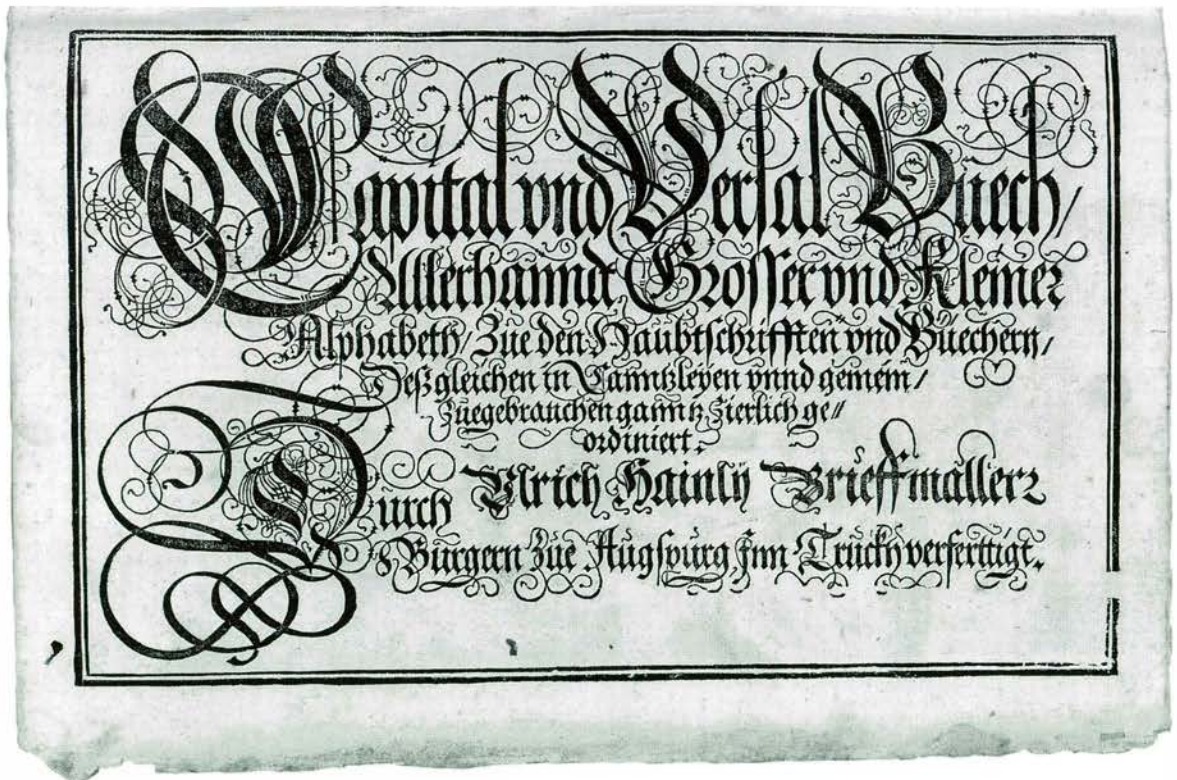 Capital vnd Versal Büech/
Allerhannd Grosser vnd Kleiner
Alphabeth/ Züe den Haubtschrifften vnd Büechern/
Deßgleichen in Canntzleyen vnnd gemein/
Züegebrauchen ganntz Zierlich ge//
ordiniert.
Durch Vlrich Hainly Brieffmallerz
Bürgern Züe Augspürg Jnn Trückh verferttigt.